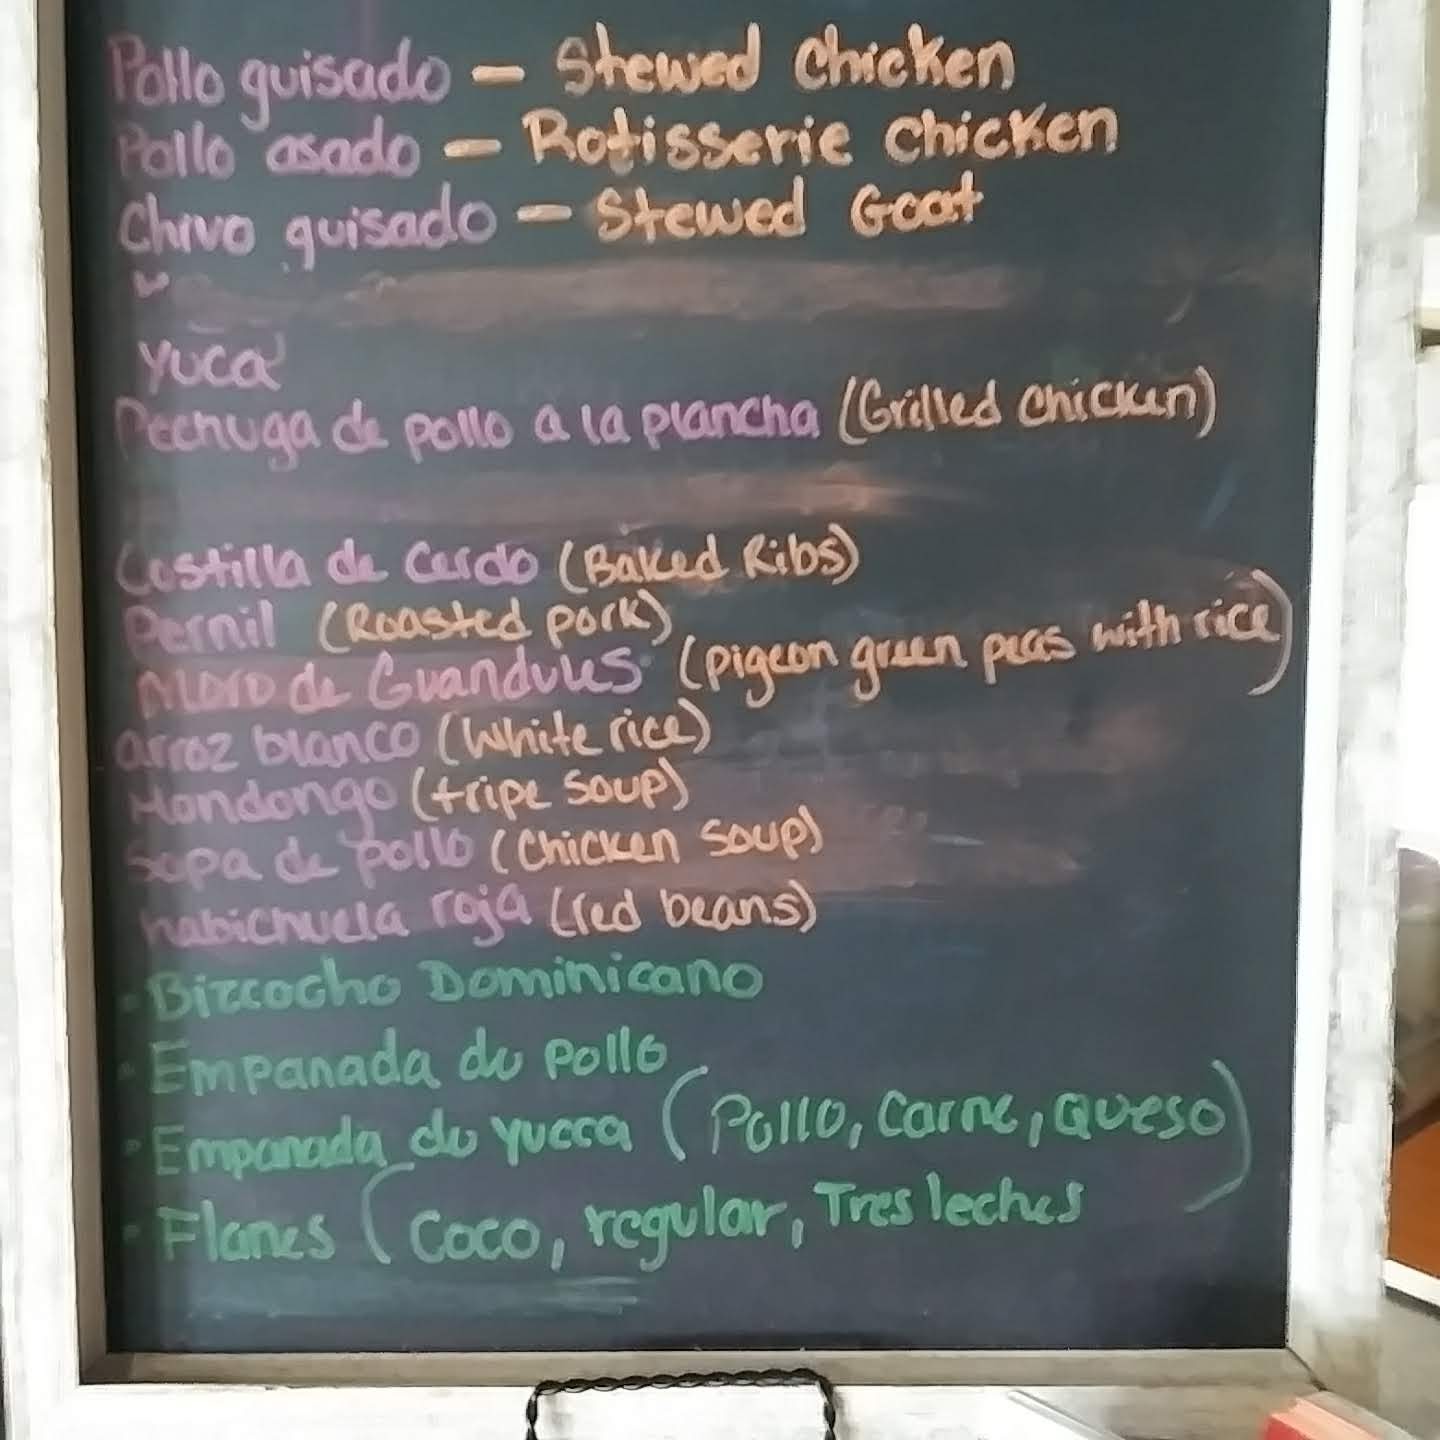 Pollo guisado — Stewed Chicken
Pollo asado — Rotisserie Chicken
Chivo guisado — Stewed Goat
Yuca
Pechuga de pollo a la plancha (Grilled Chicken)
Costilla de Cerdo (Baked Ribs)
Pernil (Roasted pork)
Moro de Guandules (pigeon green peas with rice)
arroz blanco (White rice)
Mondongo (tripe soup)
Sopa de pollo (Chicken Soup)
habichuela roja (red beans)
• Bizcocho Dominicano
• Empanada de pollo
• Empanada de yucca (Pollo, Carne, Queso)
• Flanes (Coco, regular, Tres leches